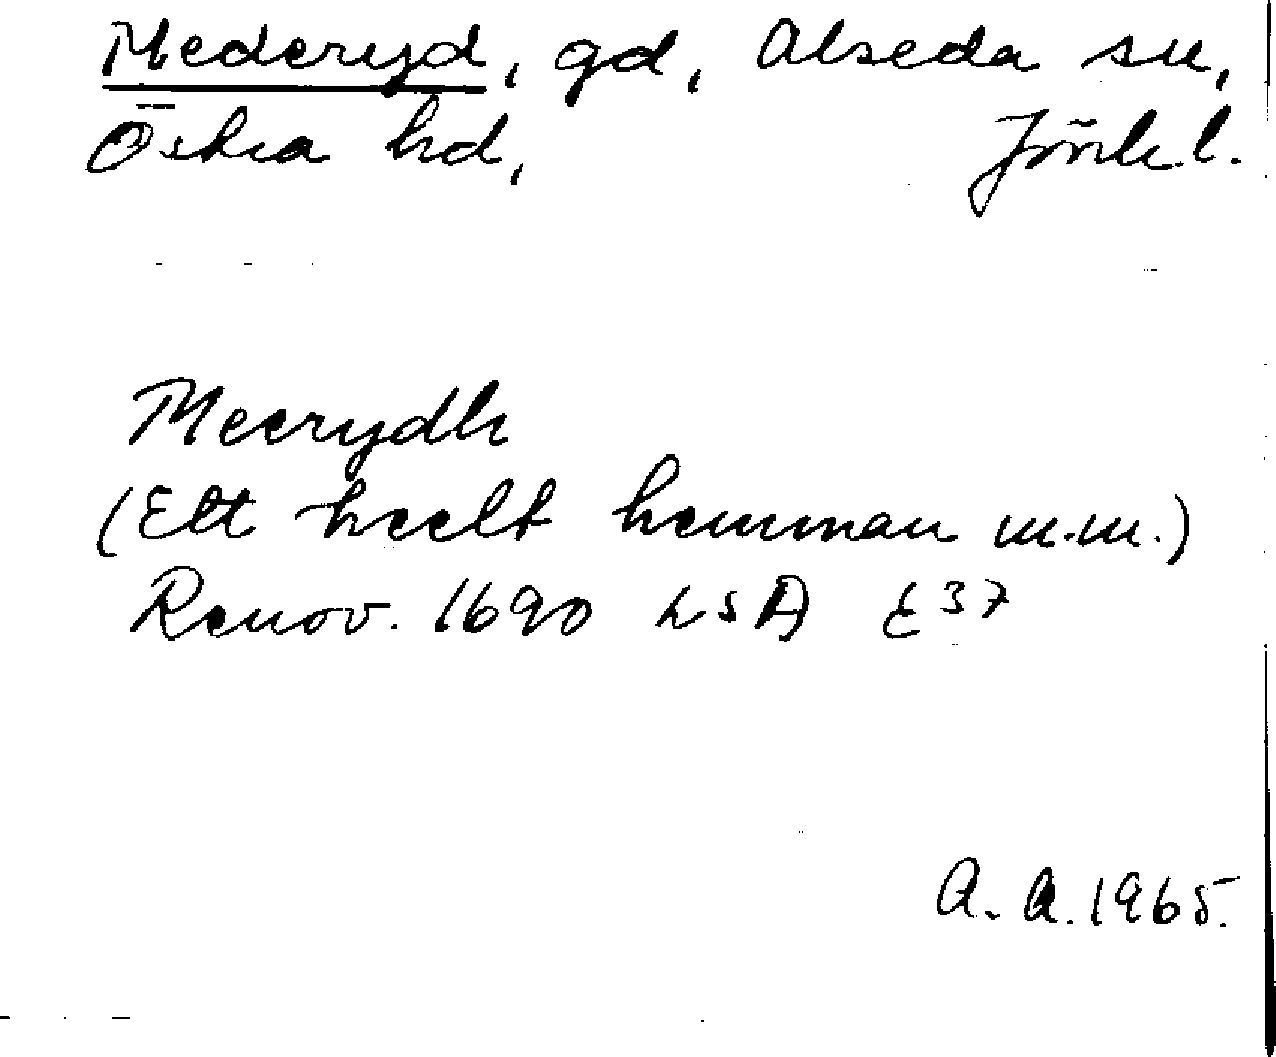 Mederyd, gd, Alseda sn,
Östra hd, Jönk.l.
Meerydh
(Ett heelt hemman m.m.)
Renov. 1690 LSA E37
A. A. 1965.